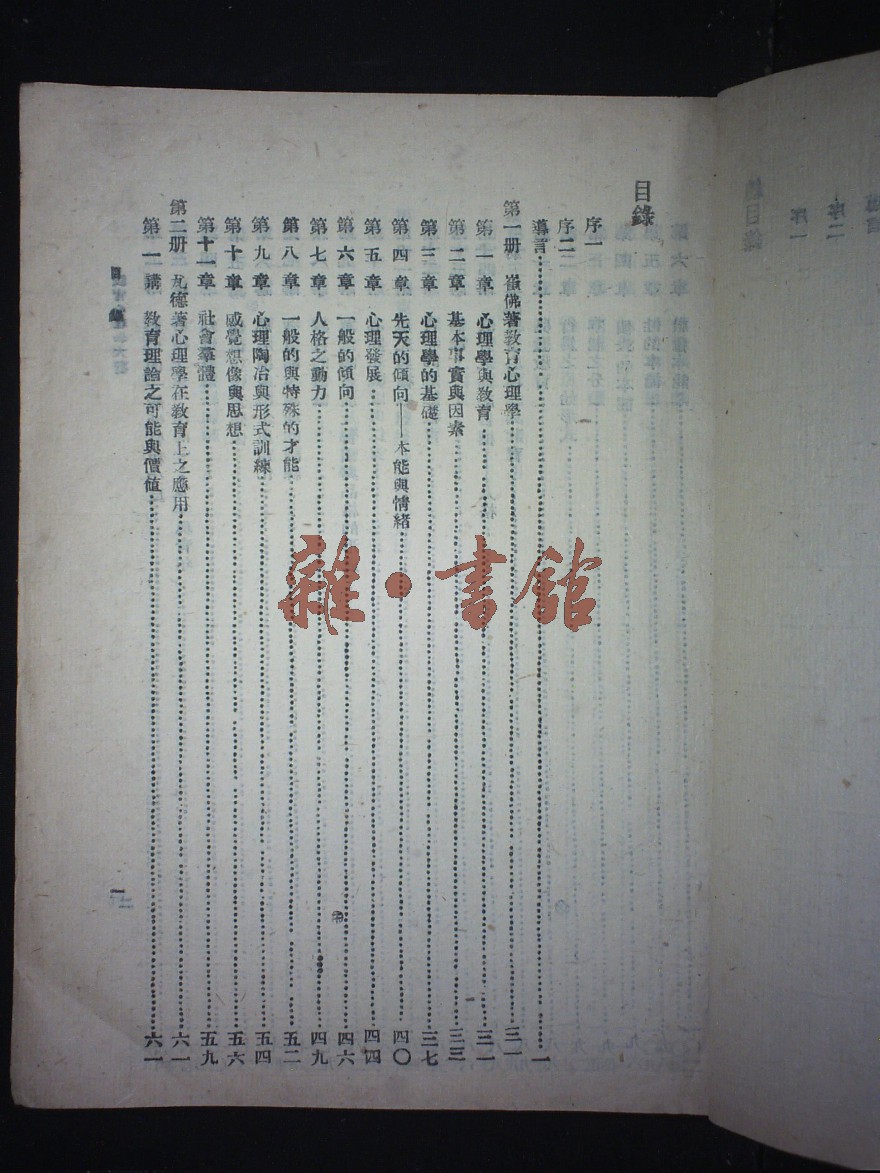 目錄
序一
序二
導言 一
第一册 崔佛著教育心理學 三一
第一章 心理學與教育 三一
第二章 基本事實與因素 三三
第三章 心理學的基礎 三七
第四章 先天的傾向——本能與情緒 四〇
第五章 心理發展 四四
第六章 一般的傾向 四六
第七章 人格之動力 四九
第八章 一般的與特殊的才能 五二
第九章 心理陶冶與形式訓練 五四
第十章 感覺想像與思想 五六
第十一章 社會羣體 五九
第二册 瓦德著心理學在教育上之應用 六一
第一講 教育理論之可能與價值 六一
目錄
一
雜·書館